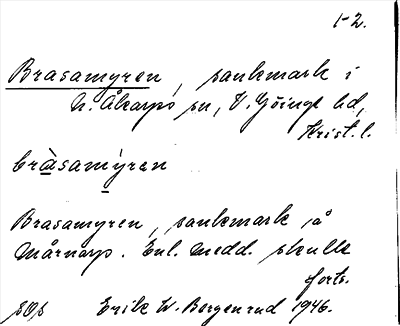 1-2.
Brasamyren, sankmark i
N. Åkarps sn, V. Göinge hd,
Krist. l.
bràsamýren
Brasamyren, sankmark å
Mårnarp. Enl. medd. skulle
forts.
Erik W. Bergenrud 1946.